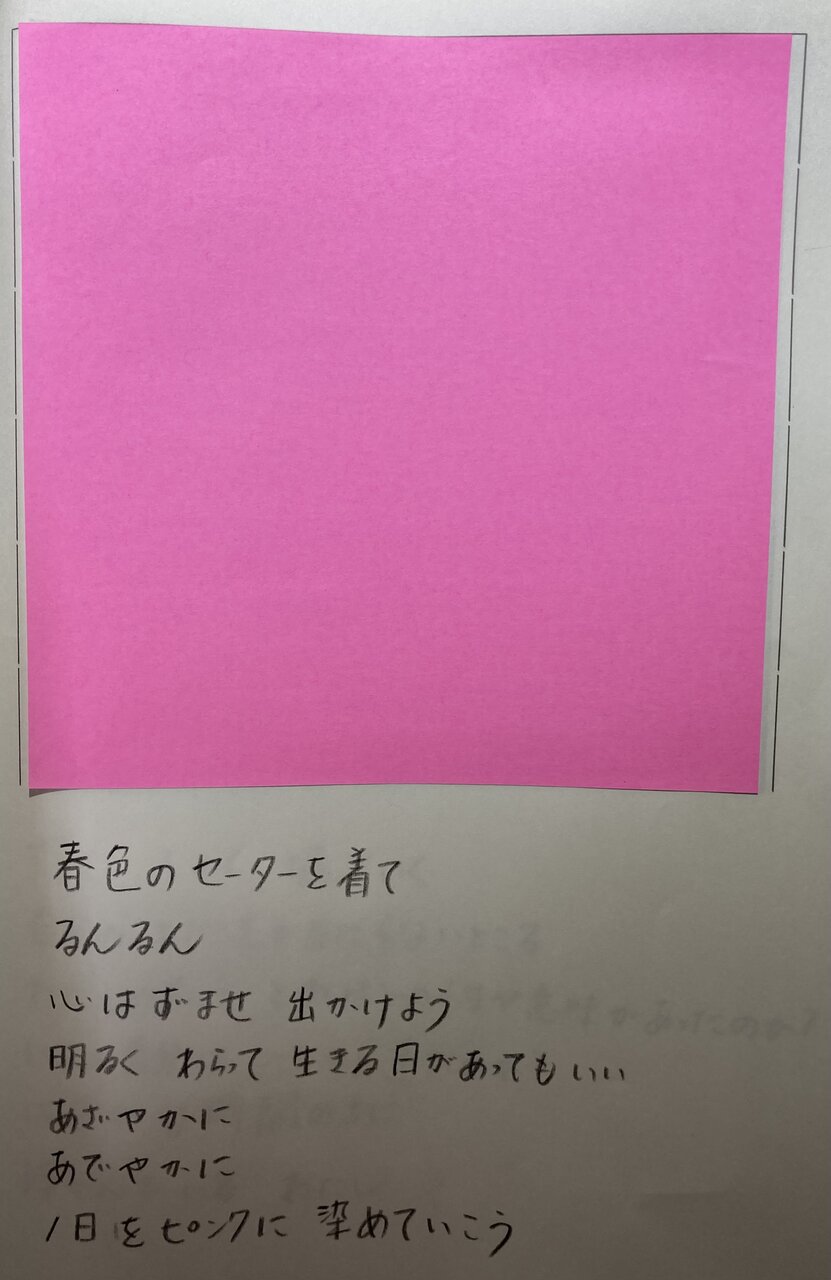 春色のセーターを着て
るんるん
心はずませ 出かけよう
明るく わらって 生きる日があってもいい
あざやかに
あでやかに
1日をピンクに 染めていこう